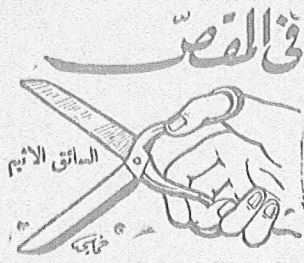 في المقص
السائق الاثيم